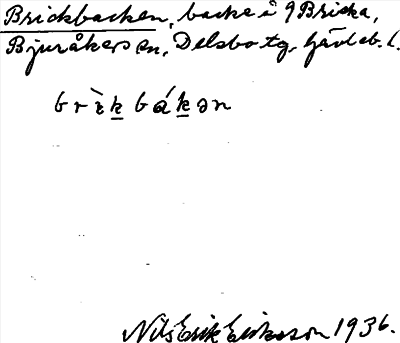 Brickbacken, backe å 9 Bricka,
Bjuråkers sn, Delsbo tg, Gävleb. l.
brìk bákən
Nils Erik Eriksson 1936.